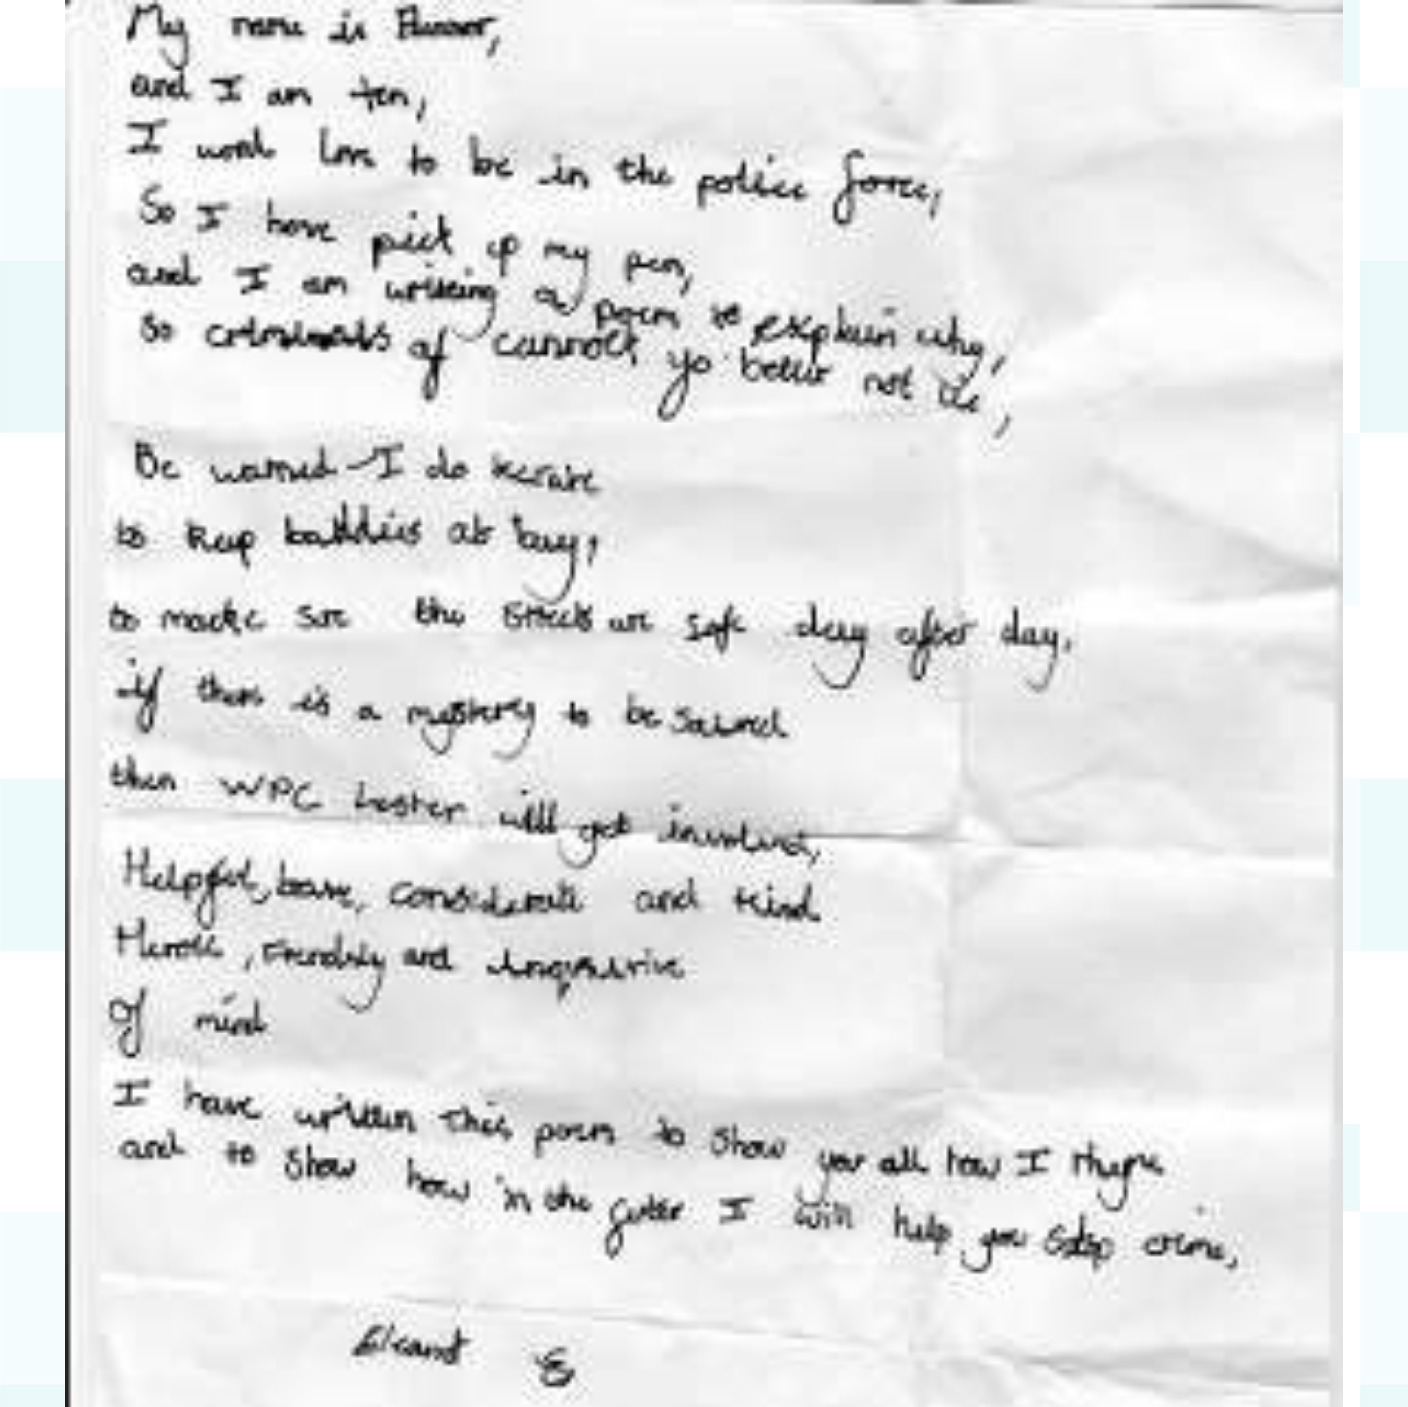 My name is
and I am ten,
I love to be in the police force,
So I have pick up my pen,
and I am writing a poem to explain why,
So criminals of yo better not
Be warned I do
to keep baddies at bay,
to sure the streets are safe day after day,
if there is a mystery to be
then WPC Lester will get involved,
Helpful, considerate and kind
Heroic, and
Of mind
I have written this poem to show you all how I
and to show how in the I will help you stop crime,